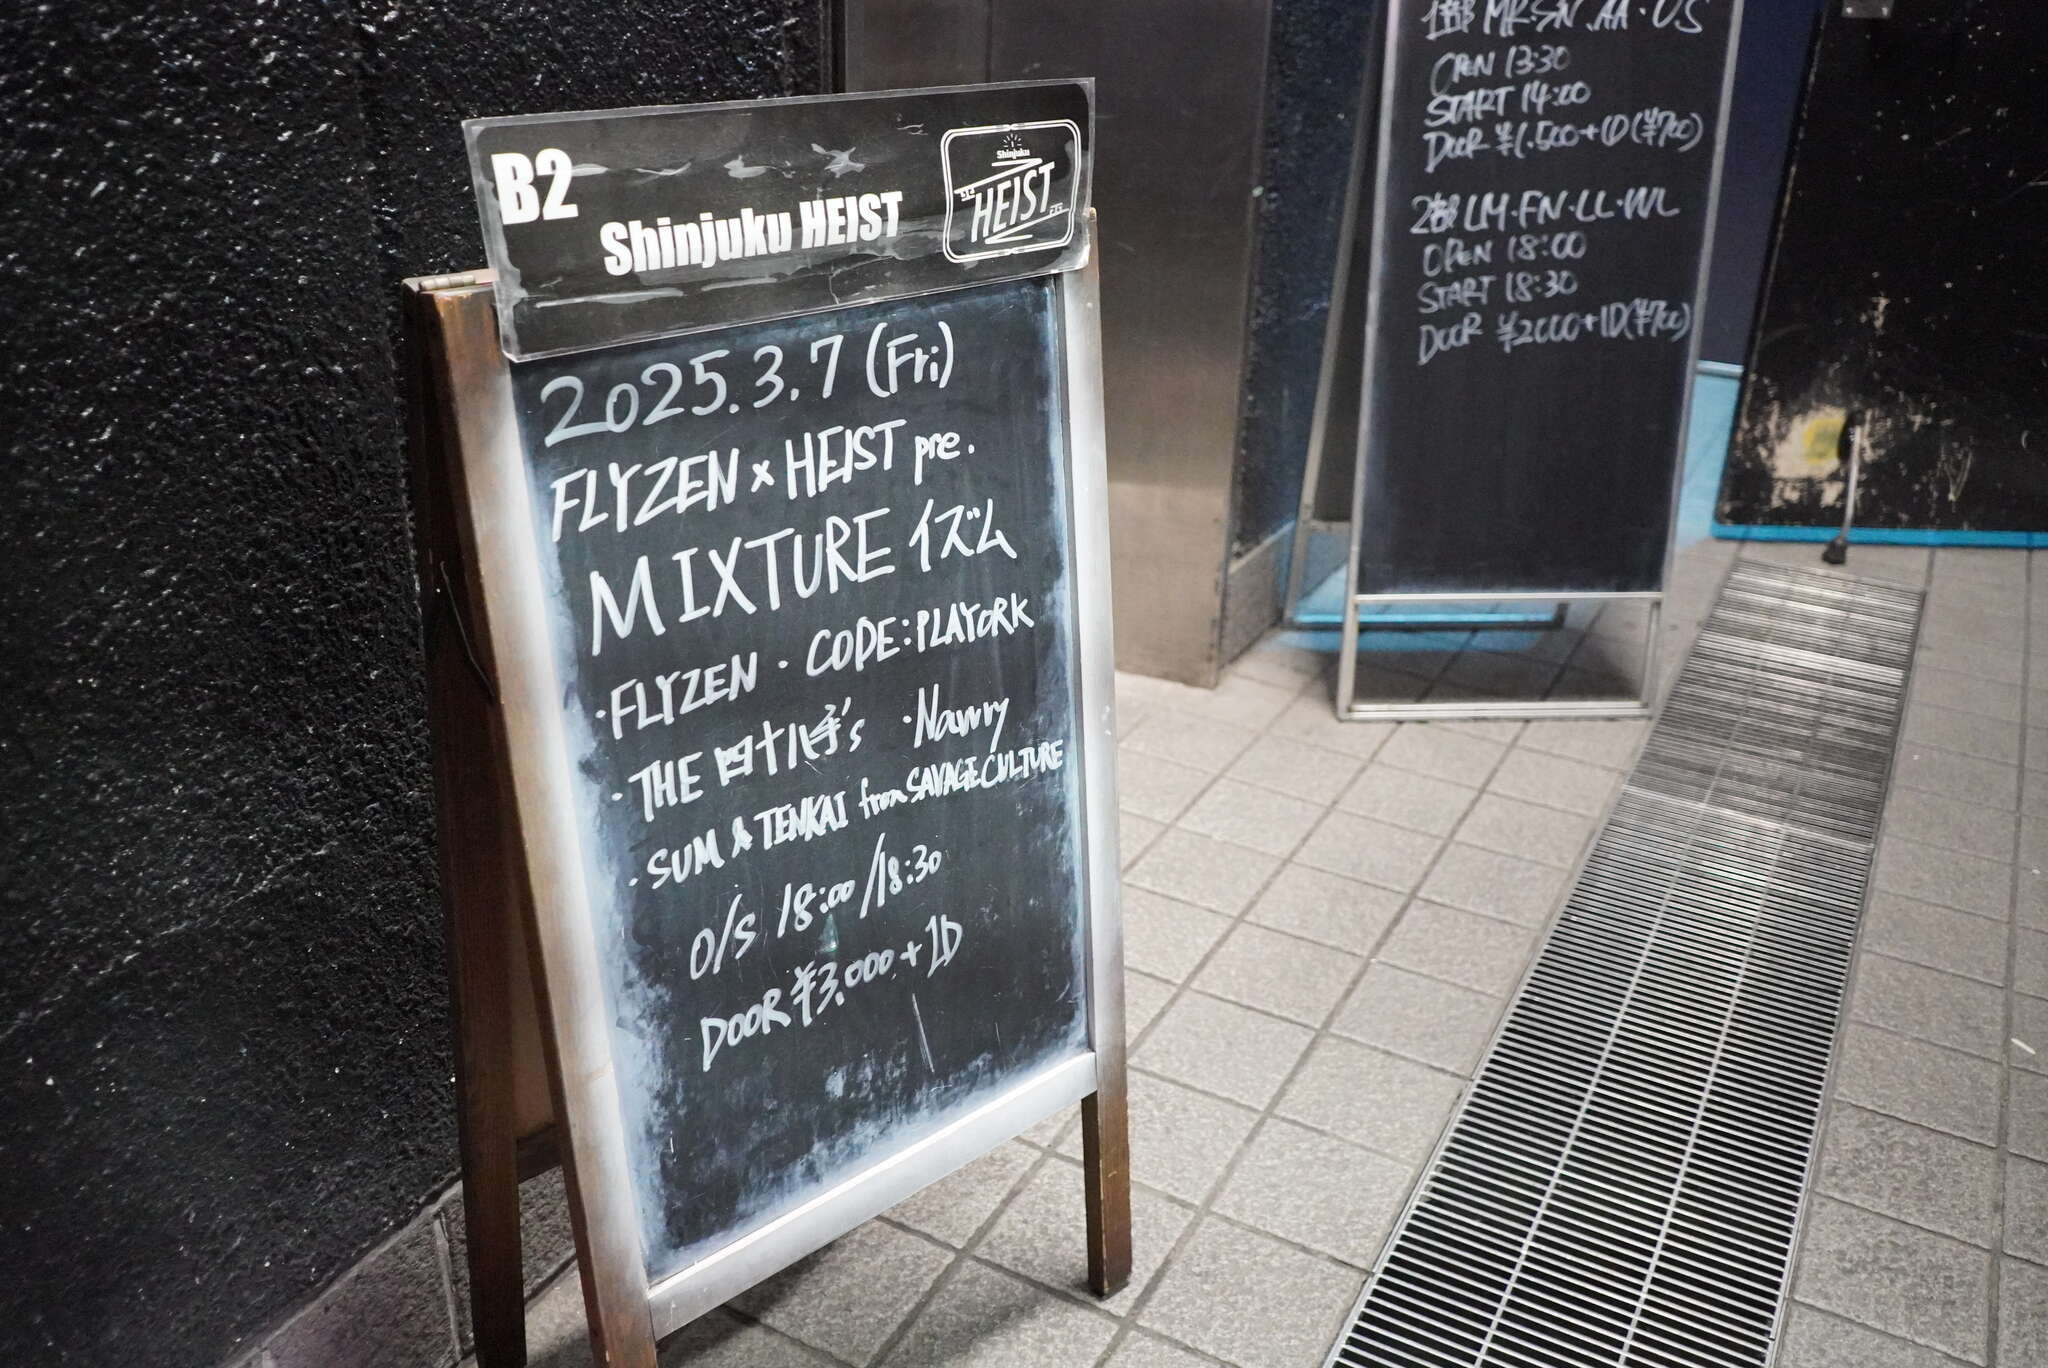 B2
Shinjuku HEIST
Shinjuku
HEIST
2025.3.7 (Fri)
FLYZEN × HEIST pre.
MIXTURE イズム
・FLYZEN ・CODE:PLAYORK
・THE 四十八手's ・Nawry
・SUM & TENKAI from SAVAGE CULTURE
O/S 18:00/18:30
DOOR ¥3,000+1D
1部 MR.SN.AA.U.S
OPEN 13:30
START 14:00
DOOR ¥1.500+1D(¥700)
2部 LM.FN.LL.WL
OPEN 18:00
START 18:30
DOOR ¥2000+1D(¥700)